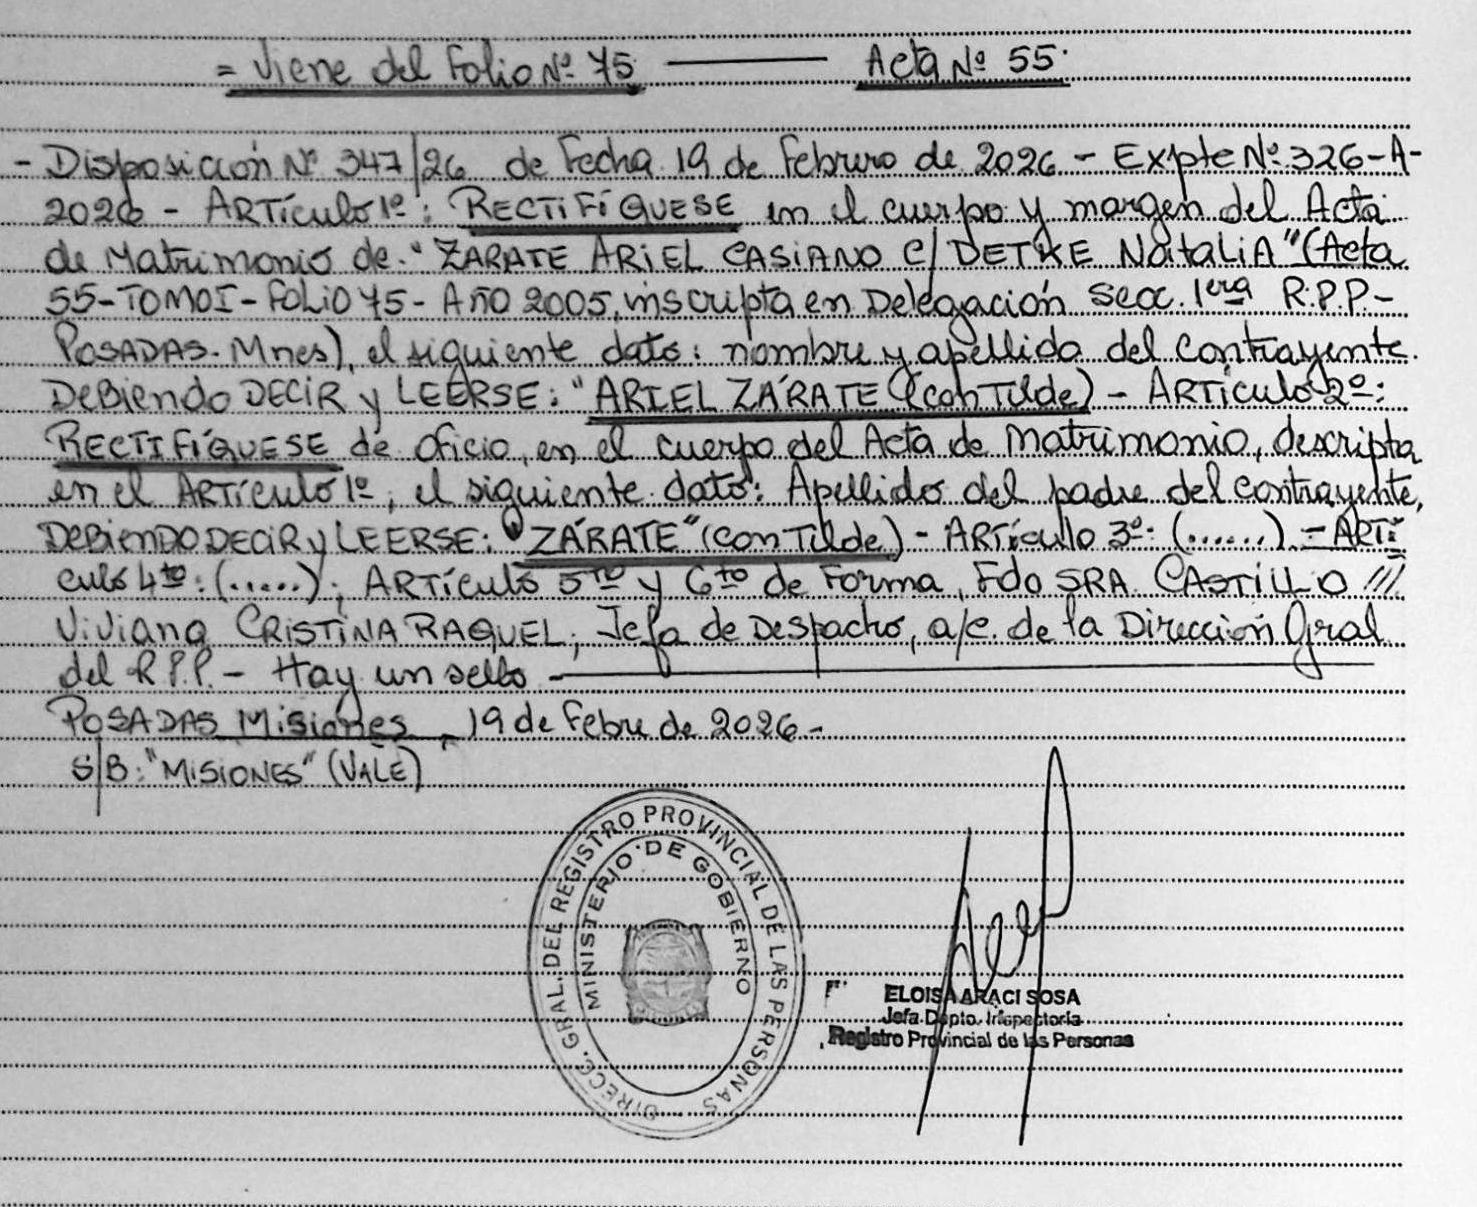 = Viene del Folio Nº 75 ——— Acta Nº 55.
- Disposición Nº 347/26 de Fecha 19 de Febrero de 2026 - Expte Nº 326-A-
2026 - ARTículo 1º: RECTIFÍQUESE en el cuerpo y margen del Acta
de Matrimonio de "ZARATE ARIEL CASIANO C/ DETKE NataLiA" (Acta
55-TOMO I-FOLIO 75- AÑO 2005, inscripta en Delegación Secc. 1era R.P.P.-
POSADAS-Mnes), el siguiente dato: nombre y apellido del contrayente.
DEBiendo DECIR y LEERSE: "ARIEL ZÁRATE (con Tilde) - ARTículo 2º:
RECTIFÍQUESE de oficio, en el cuerpo del Acta de Matrimonio, descripta
en el ARTículo 1º, el siguiente dato: Apellido del padre del contrayente,
DEBIENDO DECIR y LEERSE: "ZÁRATE" (con Tilde) - ARTículo 3º: (......) - ARTí
culo 4to: (.....); ARTículo 5to y 6to de Forma, Fdo SRA. CASTILLO ///
Viviana CRISTINA RAQUEL, Jefa de Despacho, a/c. de la Dirección Gral
del R.P.P. - Hay un sello -
POSADAS Misiones, 19 de Febre de 2026 -
S/B: "MISIONES" (VALE)
DIRECC. GRAL. DEL REGISTRO PROVINCIAL DE LAS PERSONAS
MINISTERIO DE GOBIERNO
ELOISA ARACI SOSA
Jefa Dpto. Inspectoría
Registro Provincial de las Personas